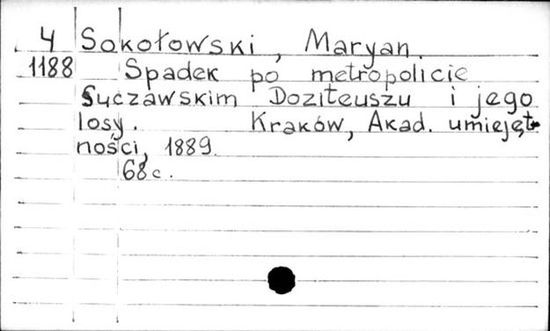 4 Sokołowski, Maryan.
1188 Spadek po metropolicie
Suczawskim Doziteuszu i jego
losy. Kraków, Akad. umiejęt-
ności, 1889.
68 c.